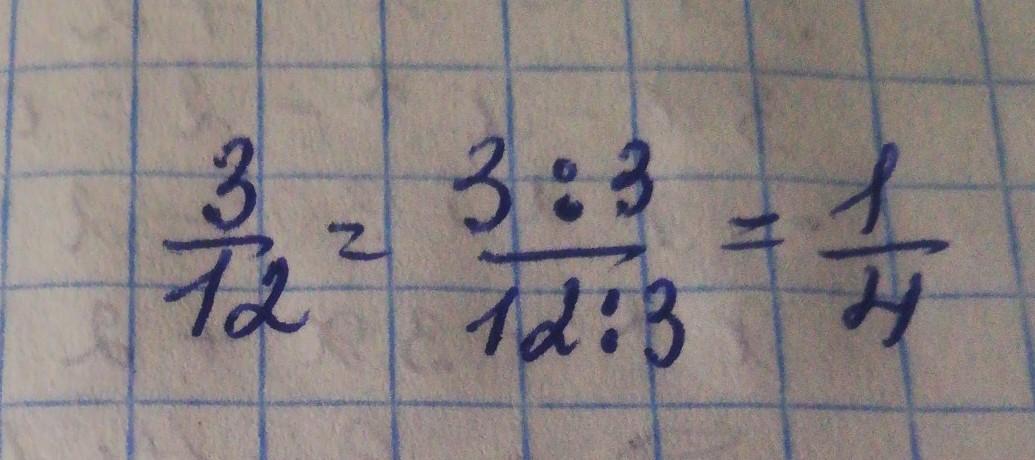 3/12 = 3:3/12:3 = 1/4